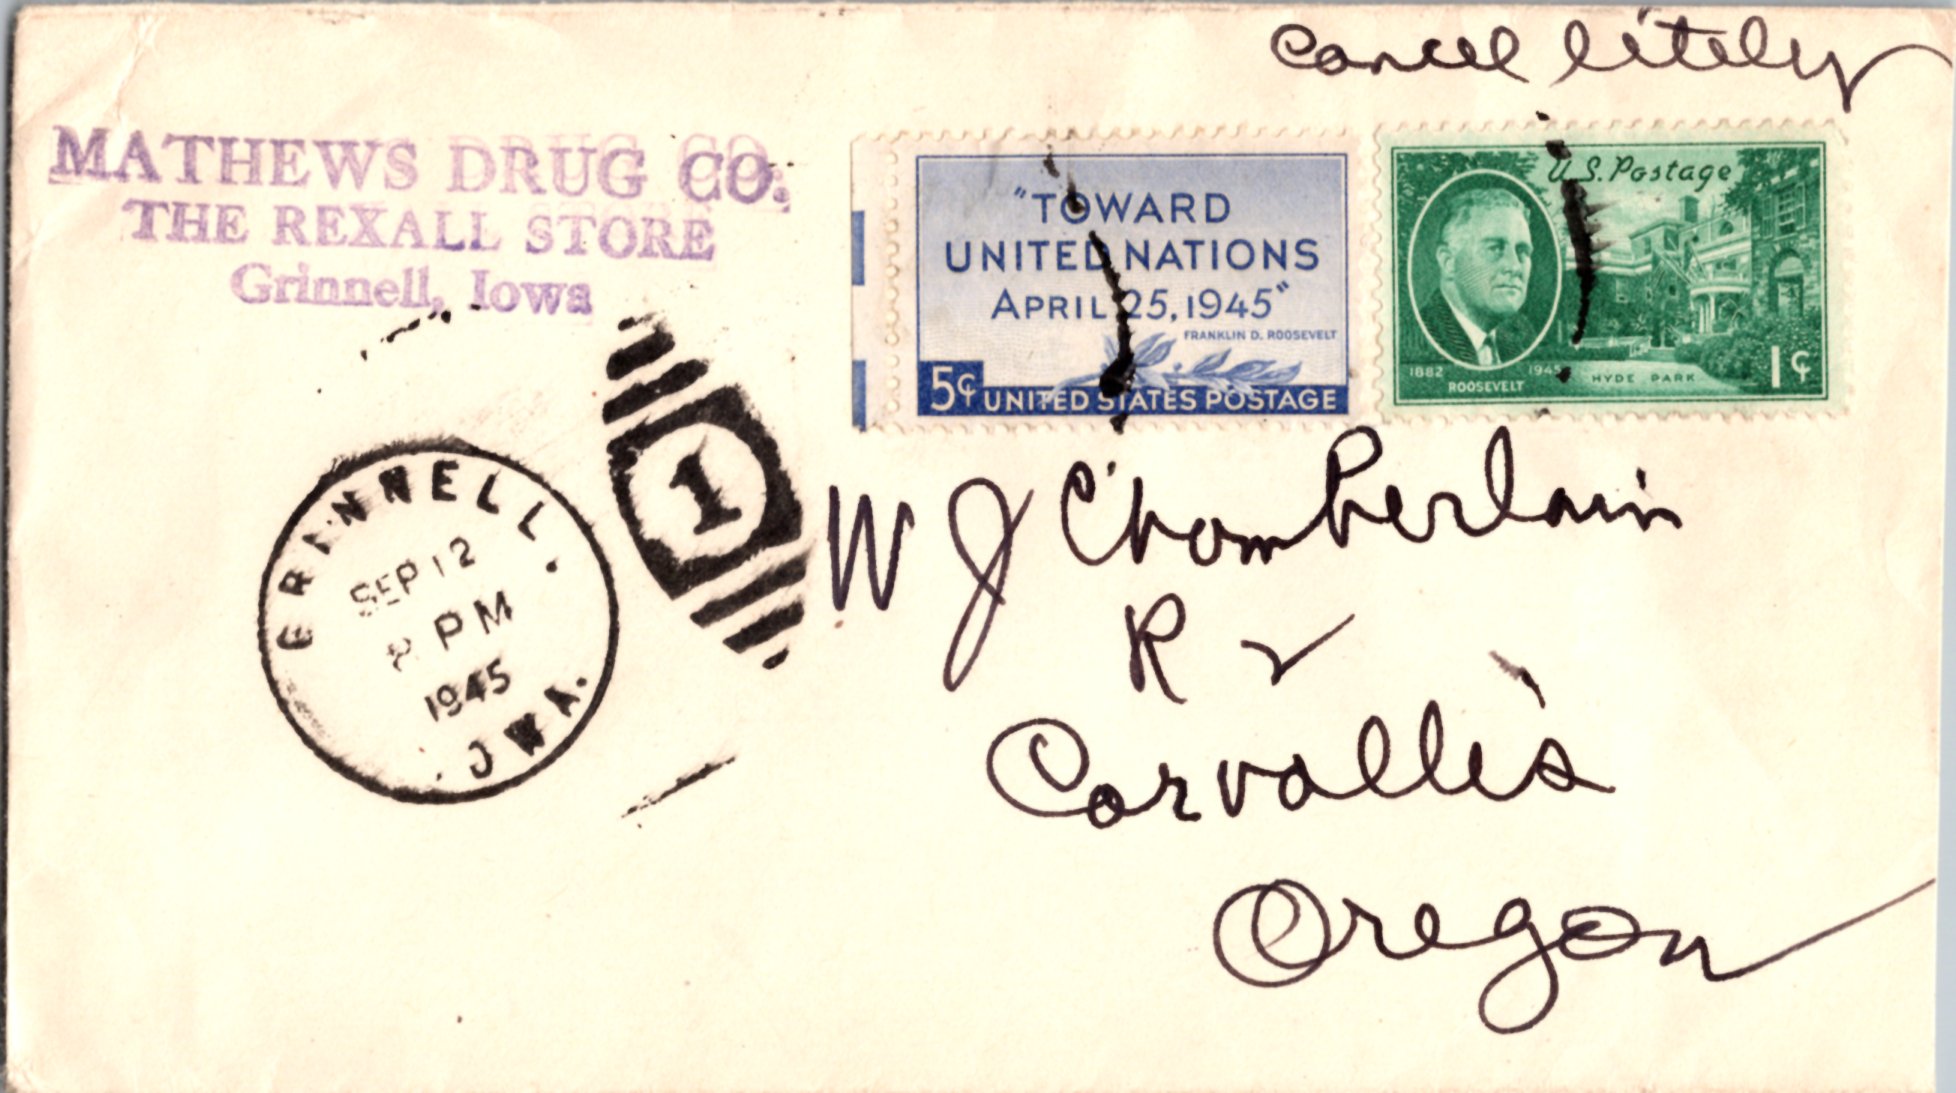 cancel litely
MATHEWS DRUG CO.
THE REXALL STORE
Grinnell, Iowa
"TOWARD
UNITED NATIONS
APRIL 25, 1945"
FRANKLIN D. ROOSEVELT
5¢ UNITED STATES POSTAGE
U.S. Postage
1882 1945
ROOSEVELT
HYDE PARK
1¢
GRINNELL.
SEP 12
PM
1945
OWA.
1
W J Chamberlain
R 2
Corvallis
Oregon